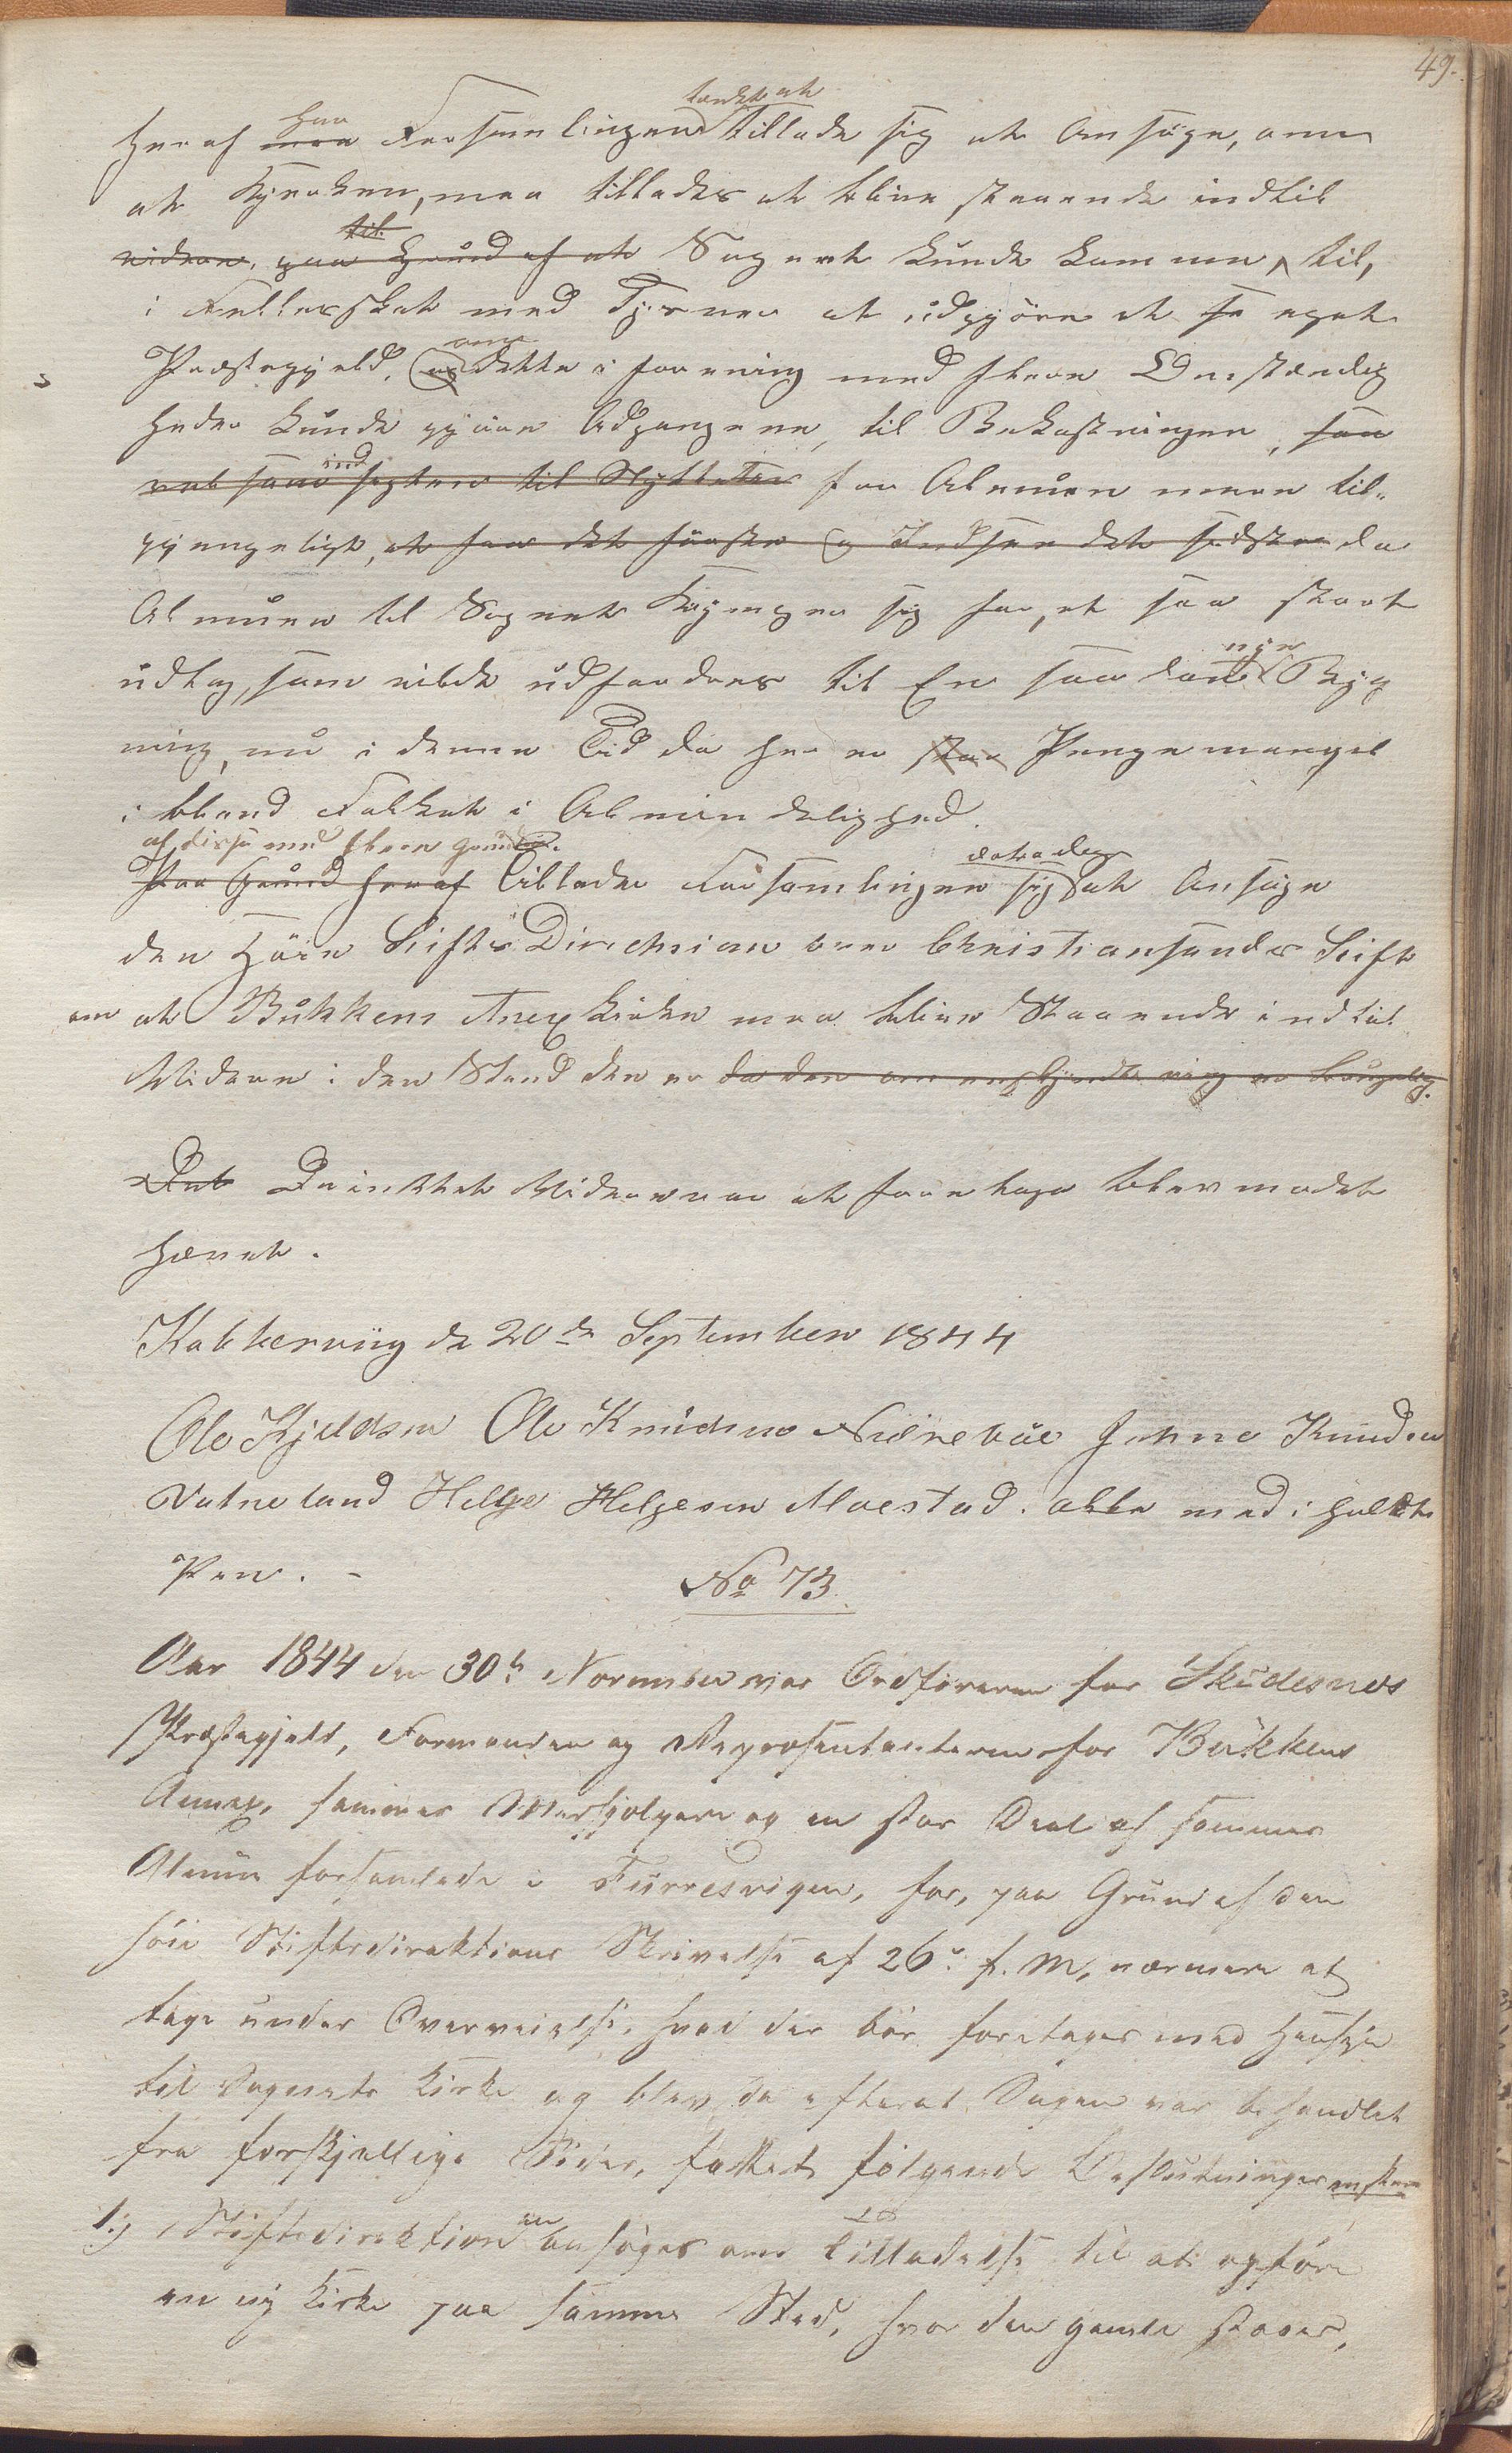 49.
heraf maa har Forsamlingen tænkt at tillade sig at Ansøge, om
at Kjerken, maa tillades at blive staaende indtil
videre, paa Grund af at til Sognet kunde komme, til,
i Fellesskab med Tjernes at udgjøre et se eget
Præstegjeld, og om dette i forening med flere Omstændig
heder kunde gjøre Adgangene, til Bekostningen, saa
vel som indsigten til Nytten for Almuen mere til-
gjengeligt, at see det første og Indsee det sidste da
Almuen til Sognet Krymper sig for, et saa stort
udlag, som vilde udfordres til En saadan nye Byg
ning, nu i denne Tid da her er stor Pengemangel
i bland Folket i Almindelighed.
Paa Grund heraf af disse med flere grunde. Tillader Forsamlingen sig at Ansøge
den Høie Stifts Direchsion over Christiansands Stift
om at Bukkens Anex Kirke maa blive Staaende indtil
Videre i den Stand den er da den er
Det Da intet Videre var at foretage blev mødet
hævet.
Kabbervig d 20de September 1844
Ole Kjeldsen Ole Knudsen Nedrebøe Johne Knudsen
Vatneland Helge Helgesen Moestad. alle med i holdt
Pen. -
No 73.
Aar 1844 den 30te November var Ordføreren for Skudesnes
Præstegjeld, Formænden og Repræsentanterne for Bukkens
Annex, sammes Medhjelpere og en stor Deel af sammes
Almue forsamlede i Førresvigen, for, paa Grund af den
høie Stiftsdirektions Skrivelse af 26de f. M, nærmere at
tage under Overveielse, hvad der bør foretages med Hensyn
til Sognets Kirke og blev da efterat Sagen var behandlet
fra forskjellige Sider, fattet følgende Beslutninger
1.) Stiftsdirektionen ansøges om Tilladelse til at opføre
en ny Kirke paa samme Sted, hvor den gamle staaer,